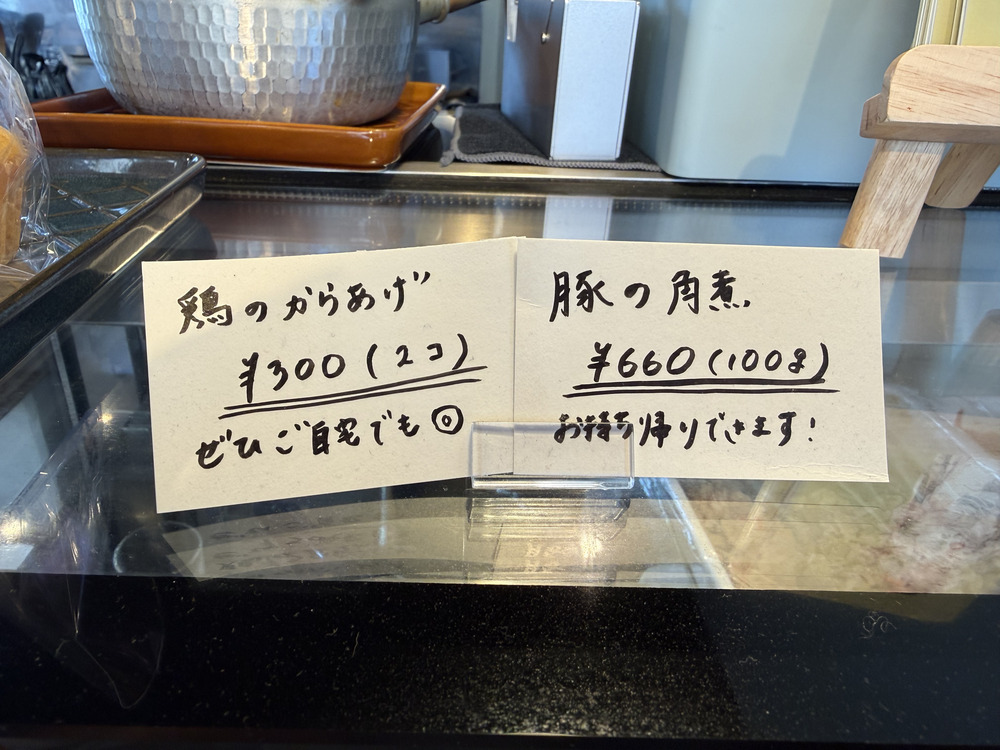 鶏のからあげ
¥300(2コ)
ぜひご自宅でも◎
豚の角煮
¥660(100g)
お持ち帰りできます!